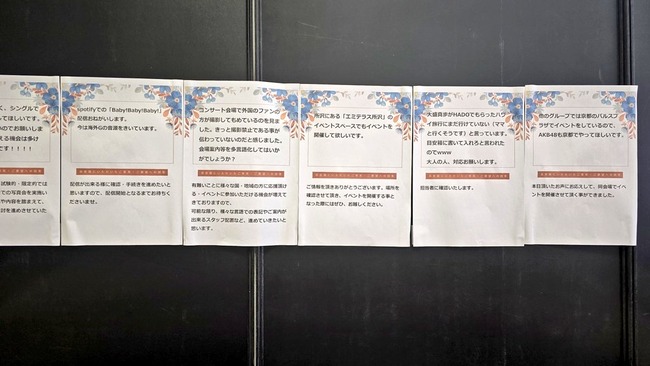 く、シングルで
てほしいです。
いのでお願いしま
える機会は多け
です！！！！
試験的・限定的では
での写真会を実施い
や内容を踏まえて、
討を進めさせていた
spotifyでの「Baby!Baby!Baby!」
配信おねがいします。
今は海外Gの音源をきいています。
配信が出来る様に確認・手続きを進めたいと
思いますので、配信開始となるまでお待ちく
ださいませ。
コンサート会場で外国のファンの
方が撮影してもめているのを見ま
した。きっと撮影禁止である事が
伝わっていないのだと感じました。
会場案内等を多言語化してはいか
がでしょうか？
有難いことに様々な国・地域の方に応援頂け
る・イベントに参加いただける機会が増えて
きておりますので、
可能な限り、様々な言語での表記やご案内が
出来るスタッフ配置など、進めていきたいと
思います。
所沢にある「エミテラス所沢」の
イベントスペースでもイベントを
開催して欲しいです。
ご情報を頂きありがとうございます。場所を
確認させて頂き、イベントを開催する事と
なった際にはぜひ、お越しください。
大盛真歩がHADOでもらったハワ
イ旅行にまだ行けていない（ママ
と行くそうです）と言っています。
目安箱に書いて入れると言われた
のでwww
大人の人、対応お願いします。
担当者に確認いたします。
他のグループでは京都のパルスプ
ラザでイベントをしているので、
AKB48も京都でやってほしいです。
本日頂いたお声にお応えして、同会場でイベ
ントを開催させて頂く事ができました。